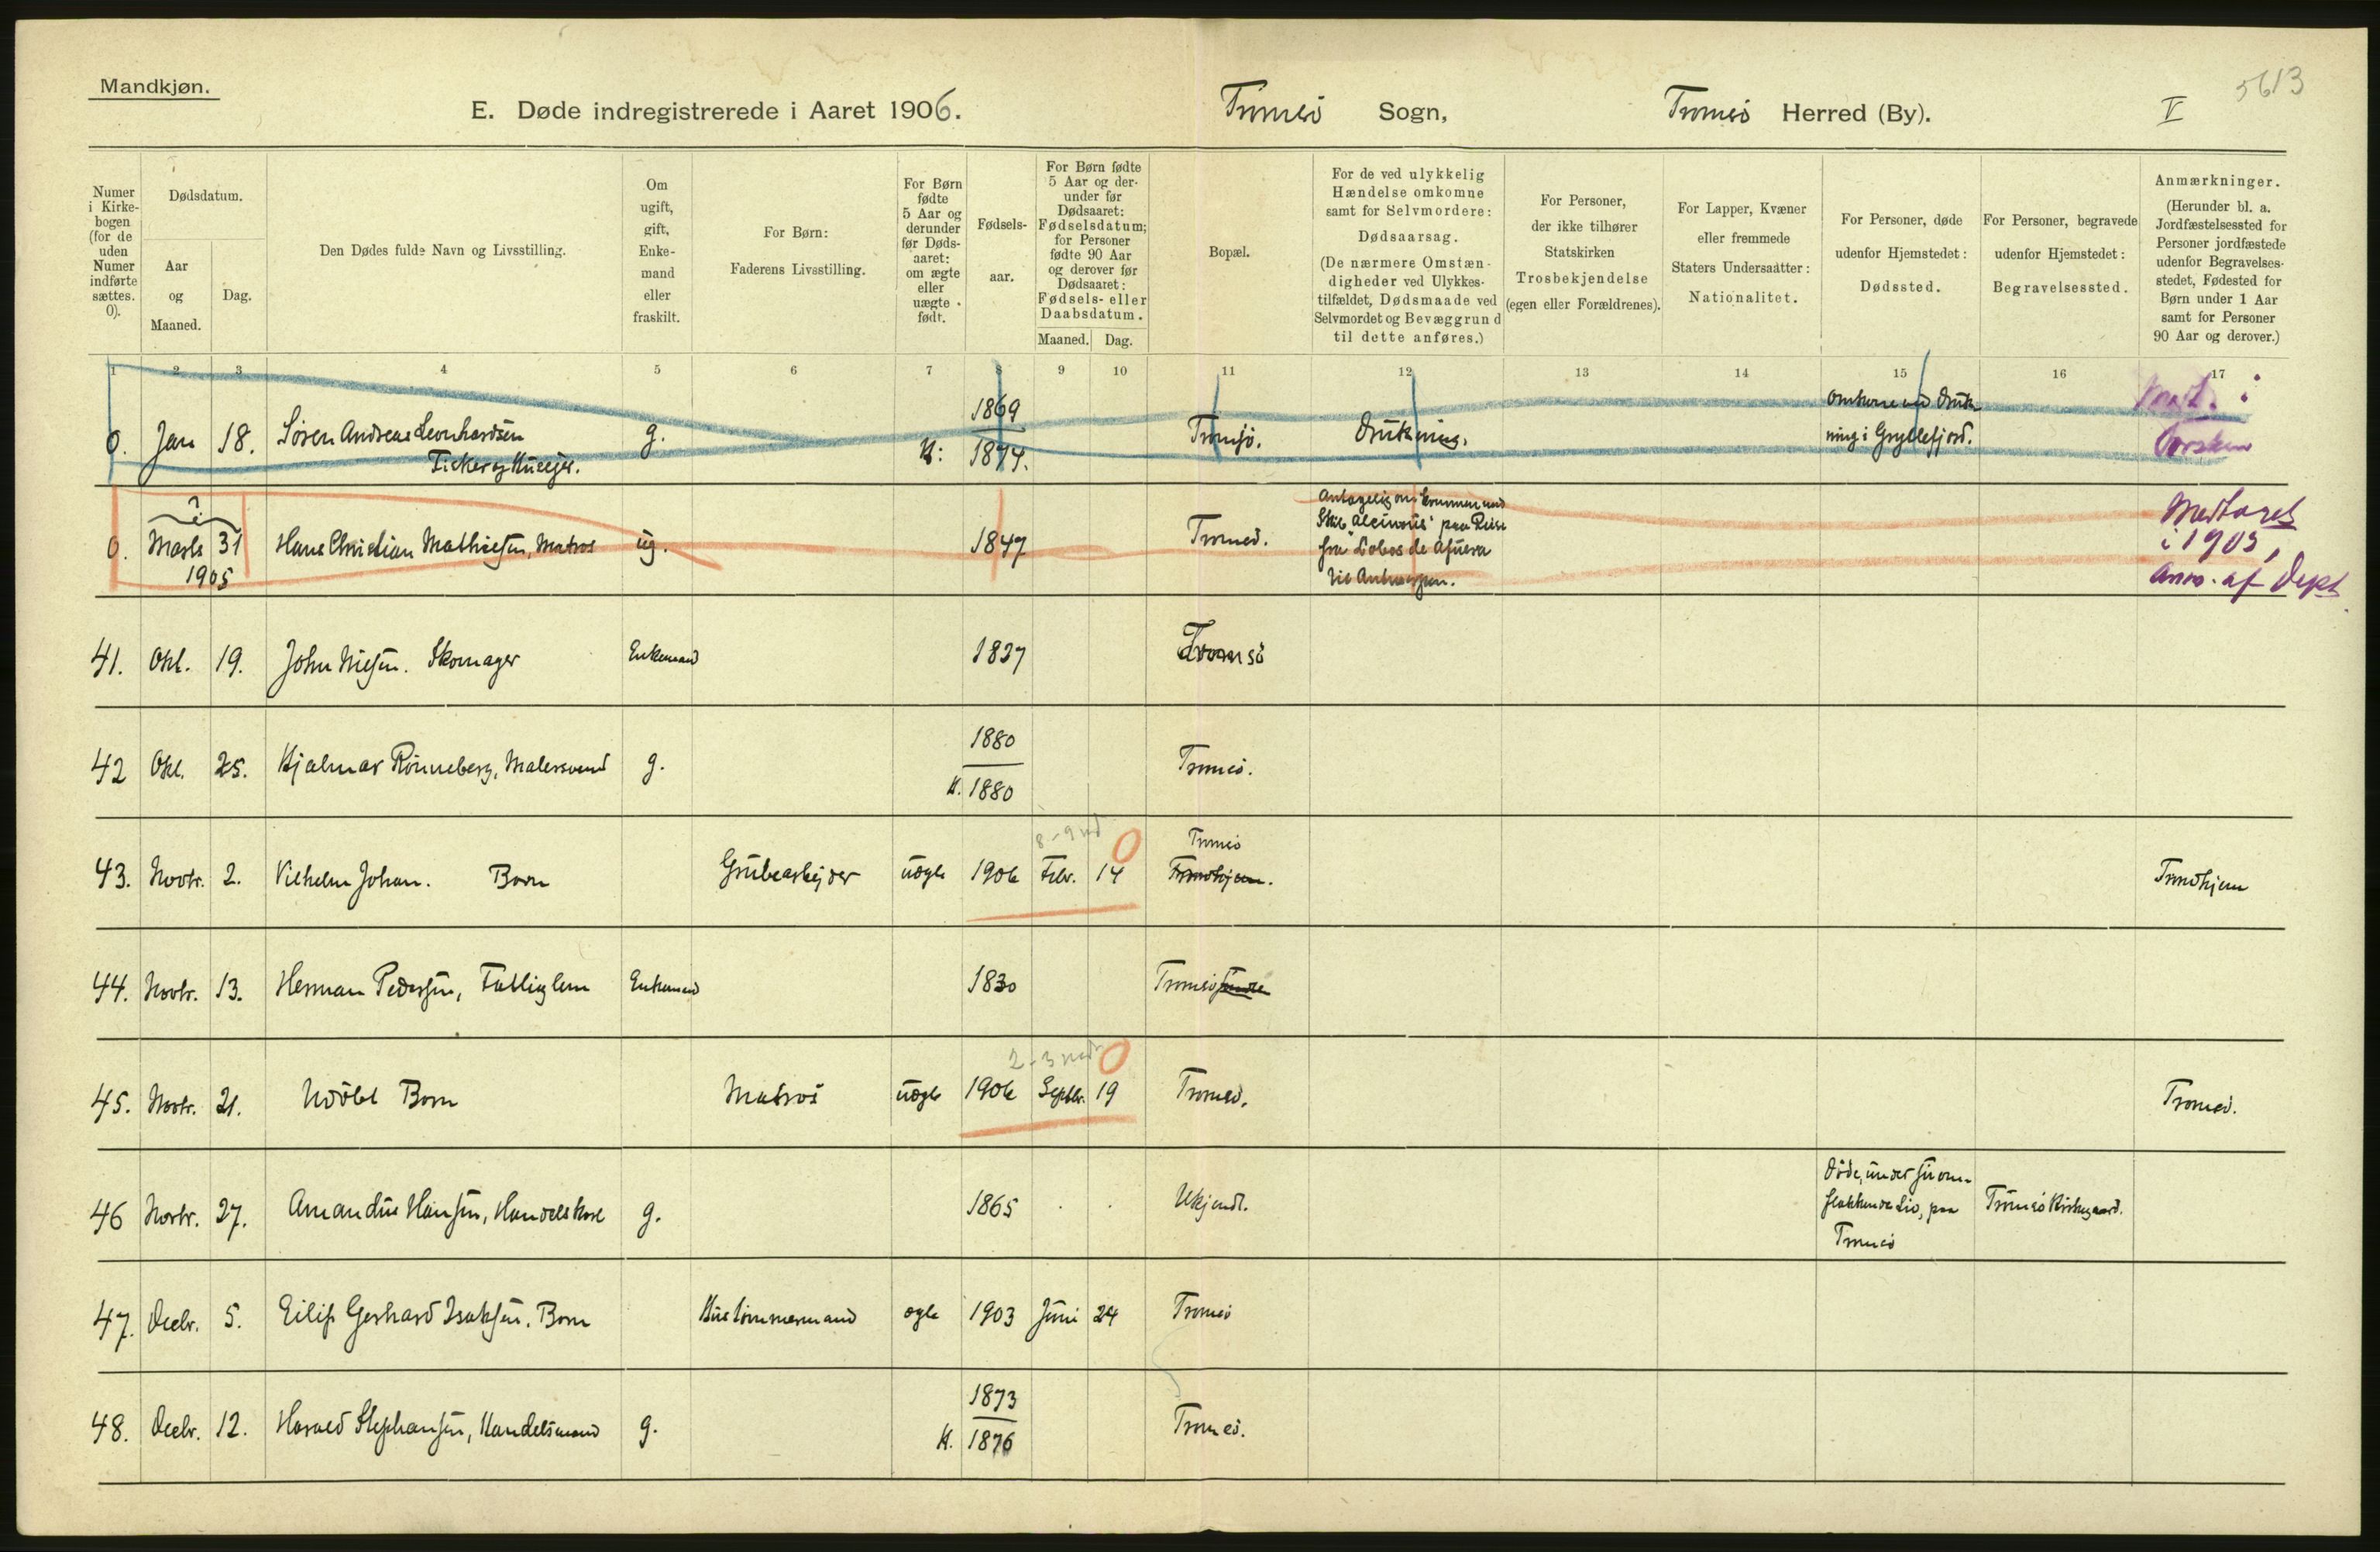 Mandkjøn.
5613
E. Døde indregistrerede i Aaret 1906. Tromsö Sogn, Tromsö Herred (By). V
Numer i Kirke-bogen (for de uden Numer indførte sættes. 0).
Dødsdatum.
Aar og Maaned.
Dag.
Den Dødes fulde Navn og Livsstilling.
Om ugift, gift, Enke-mand eller fraskilt.
For Børn:
Faderens Livsstilling.
For Børn fødte 5 Aar og derunder før Døds-aaret: om ægte eller uægte født.
Fødsels-aar.
For Børn fødte 5 Aar og der-under før Dødsaaret: Fødselsdatum; for Personer fødte 90 Aar og derover før Dødsaaret: Fødsels- eller Daabsdatum.
Maaned. Dag.
Bopæl.
For de ved ulykkelig Hændelse omkomne samt for Selvmordere: Dødsaarsag.
(De nærmere Omstæn-digheder ved Ulykkes-tilfældet, Dødsmaade ved Selvmordet og Bevæggrund til dette anføres.)
For Personer, der ikke tilhører Statskirken Trosbekjendelse (egen eller Forældrenes).
For Lapper, Kvæner eller fremmede Staters Undersaatter: Nationalitet.
For Personer, døde udenfor Hjemstedet: Dødssted.
For Personer, begravede udenfor Hjemstedet: Begravelsessted.
Anmærkninger.
(Herunder bl. a. Jordfæstelsessted for Personer jordfæstede udenfor Begravelses-stedet, Fødested for Børn under 1 Aar samt for Personer 90 Aar og derover.)
1 2 3 4 5 6 7 8 9 10 11 12 13 14 15 16 17
0. Jan 18. Sören Andreas Leonhardsen Fisker og Husejer. g. 1869 K: 1874. Tromsö. Drukning. Omkomne ved Drukning i Gryllefjord. i Torsken
0. ? Marts 31 1905 Hans Christian Mathiesen, Matros ug. 1847 Tromsö. Antagelig omkommen med Skib "Alcinous" paa Reise fra "Lobos de Afuera til Antwerpen. Medtaget i 1905, Anm. af Dept
41. Okt. 19. John Nilsen. Skomager Enkemand 1837 Tromsö
42 Okt. 25. Hjalmar Rönneberg, Malersvend g. 1880 K. 1880 Tromsö.
43. Novbr. 2. Vilhelm Johan. Barn Grubearbejder uægte 1906 8-9 md Febr. 14 0 Tromsö Trondhjem. Trondhjem
44. Novbr. 13. Herman Pedersen, Fattiglem Enkemand 1830 Tromsö
45. Novbr. 21. Udöbt Barn Matros uægte 1906 2-3 mdr Septbr. 19 0 Tromsö. Tromsö.
46 Novbr. 27. Amandus Hansen, Handelskarl g. 1865 Ukjendt. Döde, under sit om-flakkende Liv, paa Tromsö Tromsö Kirkegaard.
47. Decbr. 5. Eilif Gerhard Isaksen. Barn Hustömmermand ægte 1903 Juni 24 Tromsö
48. Decbr. 12. Harald Stephansen, Handelsmand g. 1873 K. 1876 Tromsö.